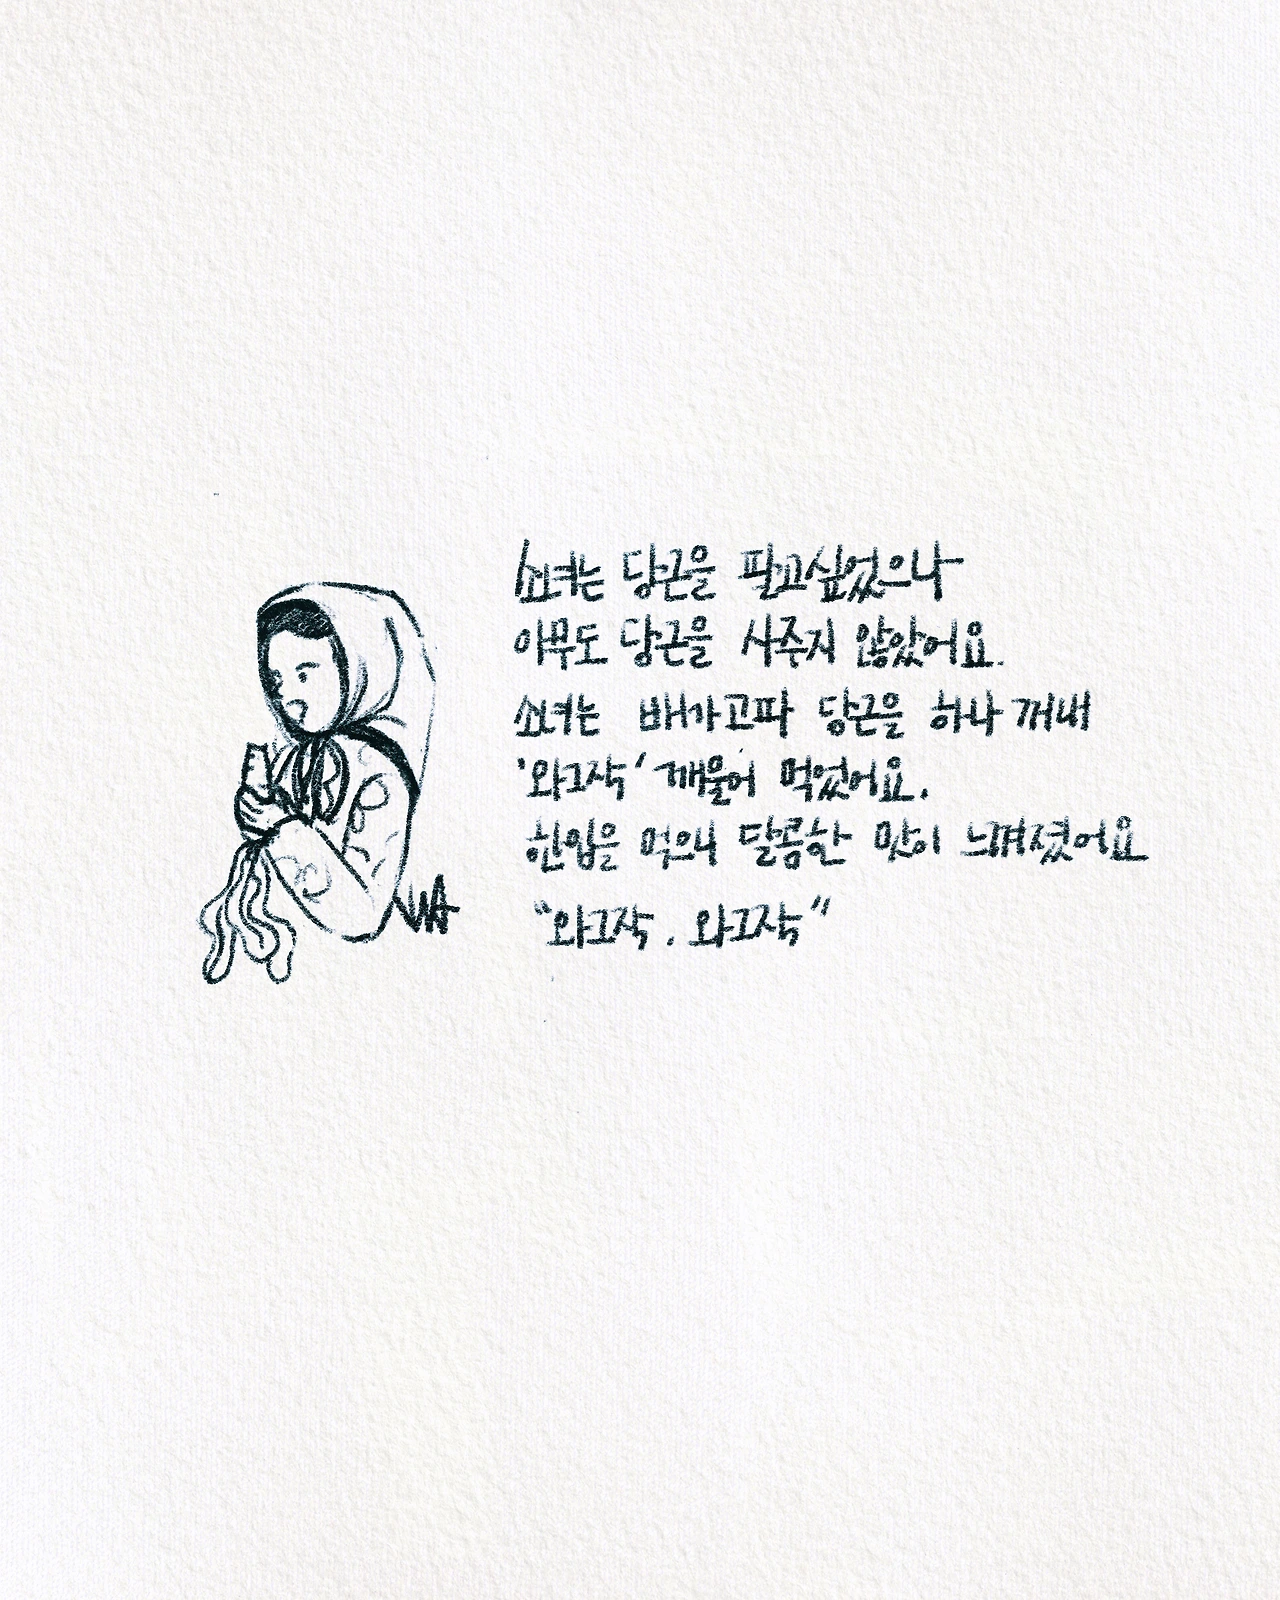 소녀는 당근을 팔고싶었으나
아무도 당근을 사주지 않았어요.
소녀는 배가고파 당근을 하나 꺼내
'와그작' 깨물어 먹었어요.
한입을 먹으니 달콤한 맛이 느껴졌어요
"와그작. 와그작"